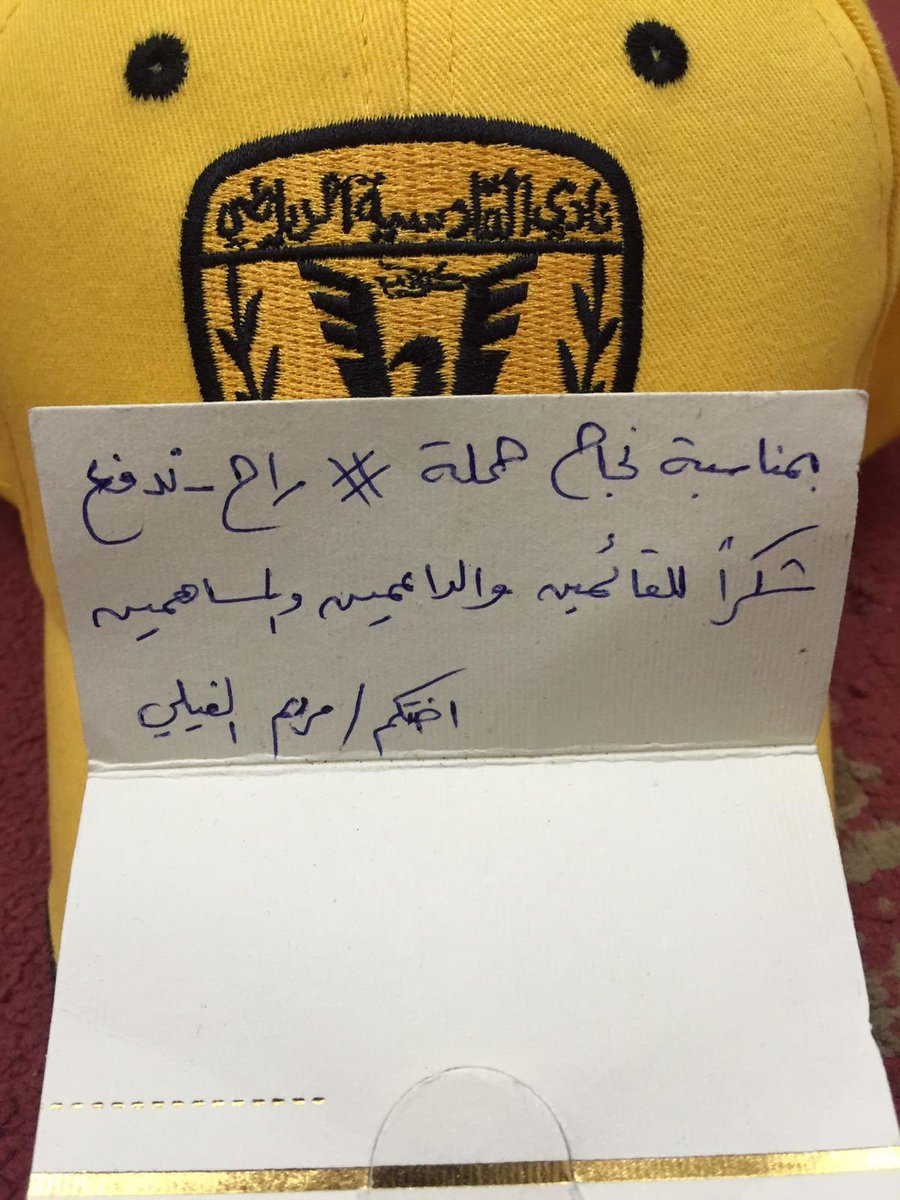 نادي القادسية الرياضي
بمناسبة نجاح حملة # راح_تدفع
شكراً للقائمين والداعمين والمساهمين
اختكم / مريم الفيلي